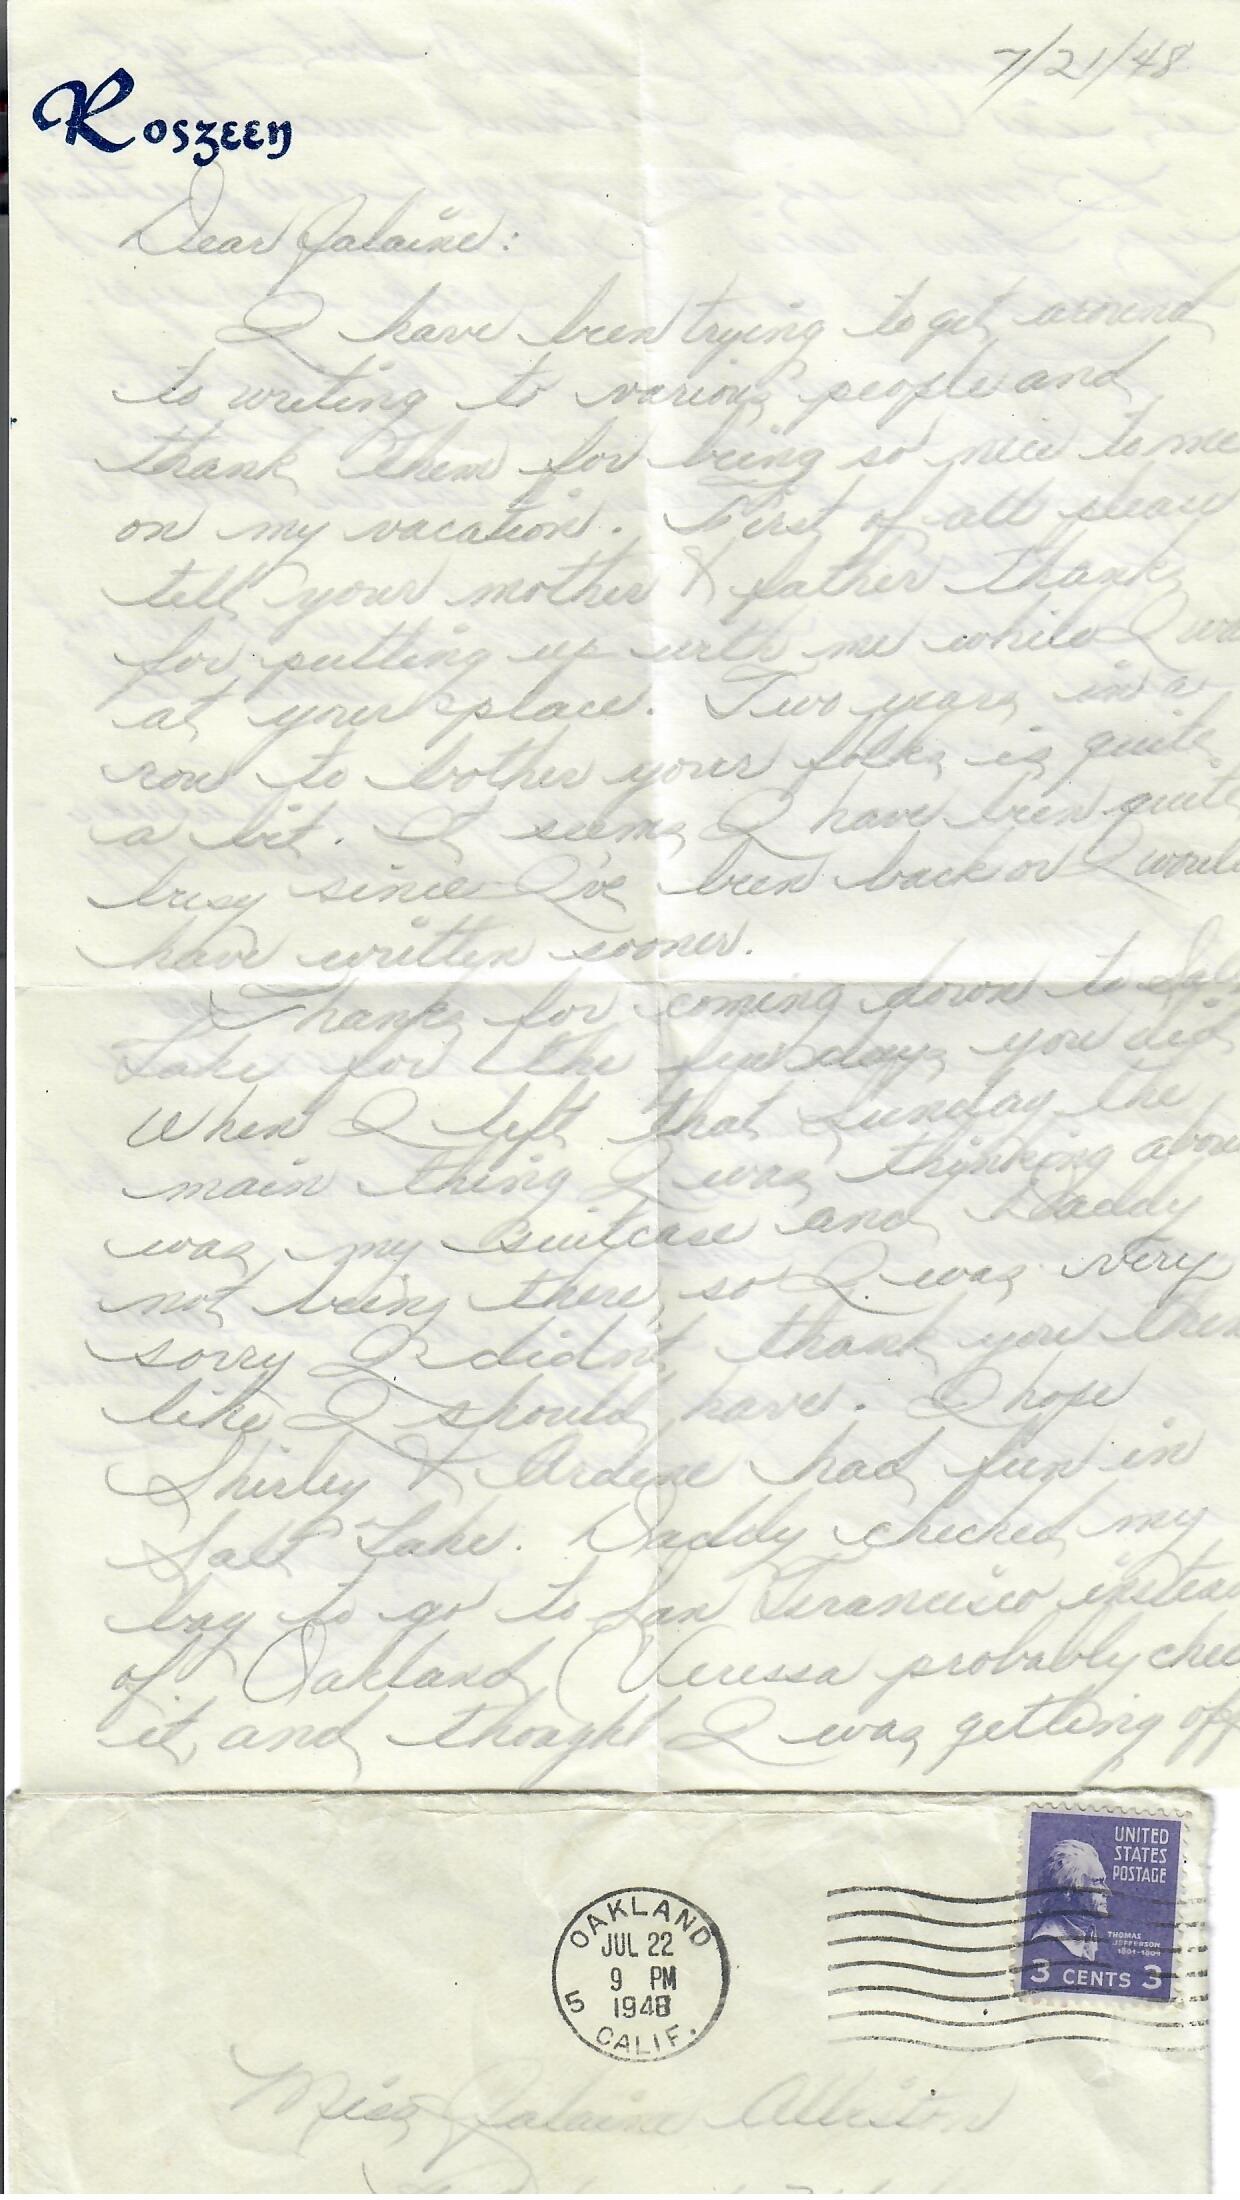 7/21/48
Roszeen
Dear Jalaine:
I have been trying to get around
to writing to various people and
thank them for being so nice to me
on my vacation. First of all please
tell your mother & father thanks
for putting up with me while I wa
at your place. Two years in a
row to bother your folks is quite
a bit. It seems I have been quite
busy since I've been back or I would
have written sooner.
Thanks for coming down to Salt
Lake for the few days you did
When I left that Sunday the
main thing I was thinking abou
was my suitcase and Daddy
not being there, so I was very
sorry I didn't thank you then
like I should have. I hope
Shirley & Ardene had fun in
Salt Lake. Daddy checked my
bag to go to San Francisco instead
of Oakland (Veressa probably chec
it, and thought I was getting off
UNITED
STATES
POSTAGE
THOMAS
JEFFERSON
1801-1809
3 CENTS 3
OAKLAND
JUL 22
9 PM
5 1948
CALIF.
Miss Jalaine Alliston